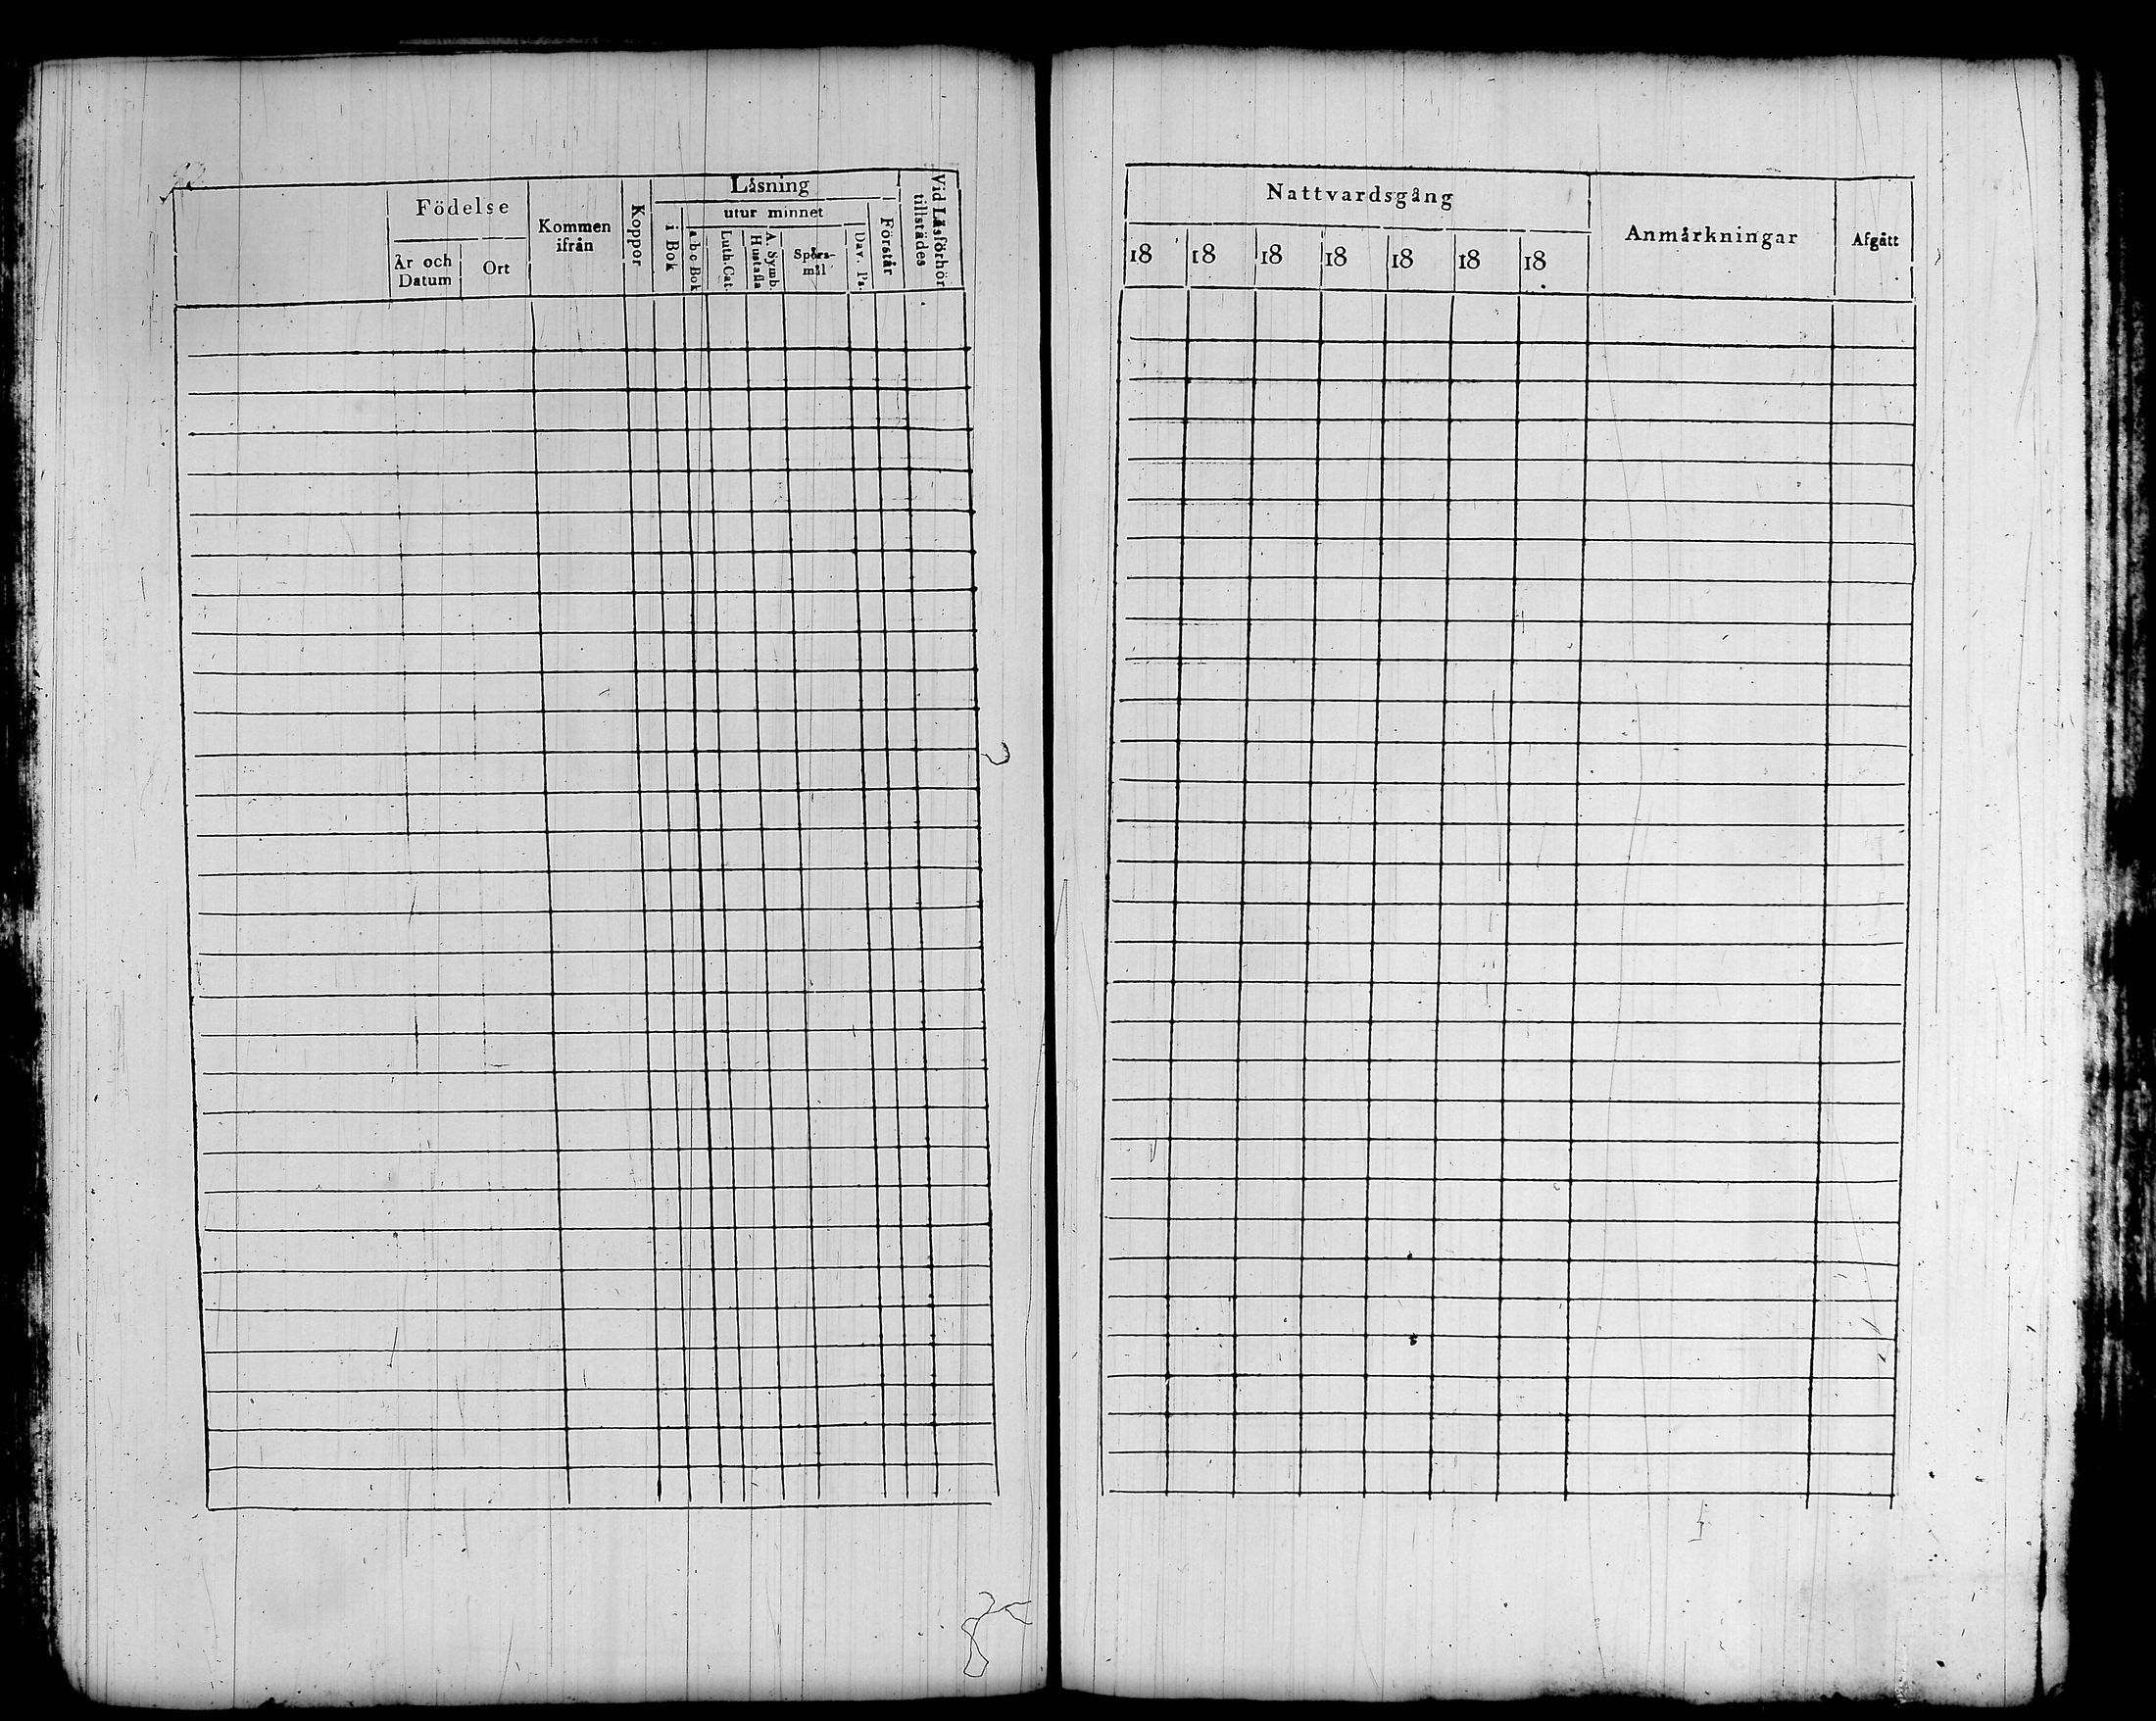 Födelse
År och
Datum
Ort
Kommen
ifrån
Koppor
Låsning
i Bok
utur minnet
a.b.c Bok
Luth. Cat.
A. Symb.
Hustafla
Spörs-
mål
Dav. Ps.
Förstår
Vid Låsförhör
tillstådes
Nattvardsgång
18 18 18 18 18 18 18
Anmårkningar
Afgått